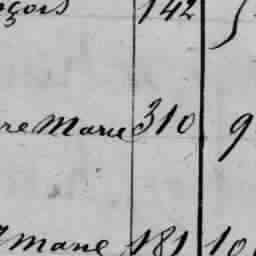 çois 142
re Marie 310 9
Marie 181 10